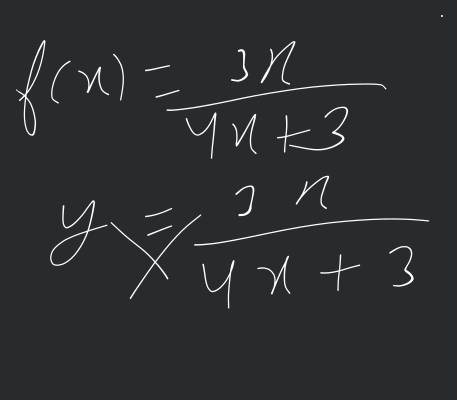 f(x) = 3x / 4x + 3
y = 3x / 4x + 3